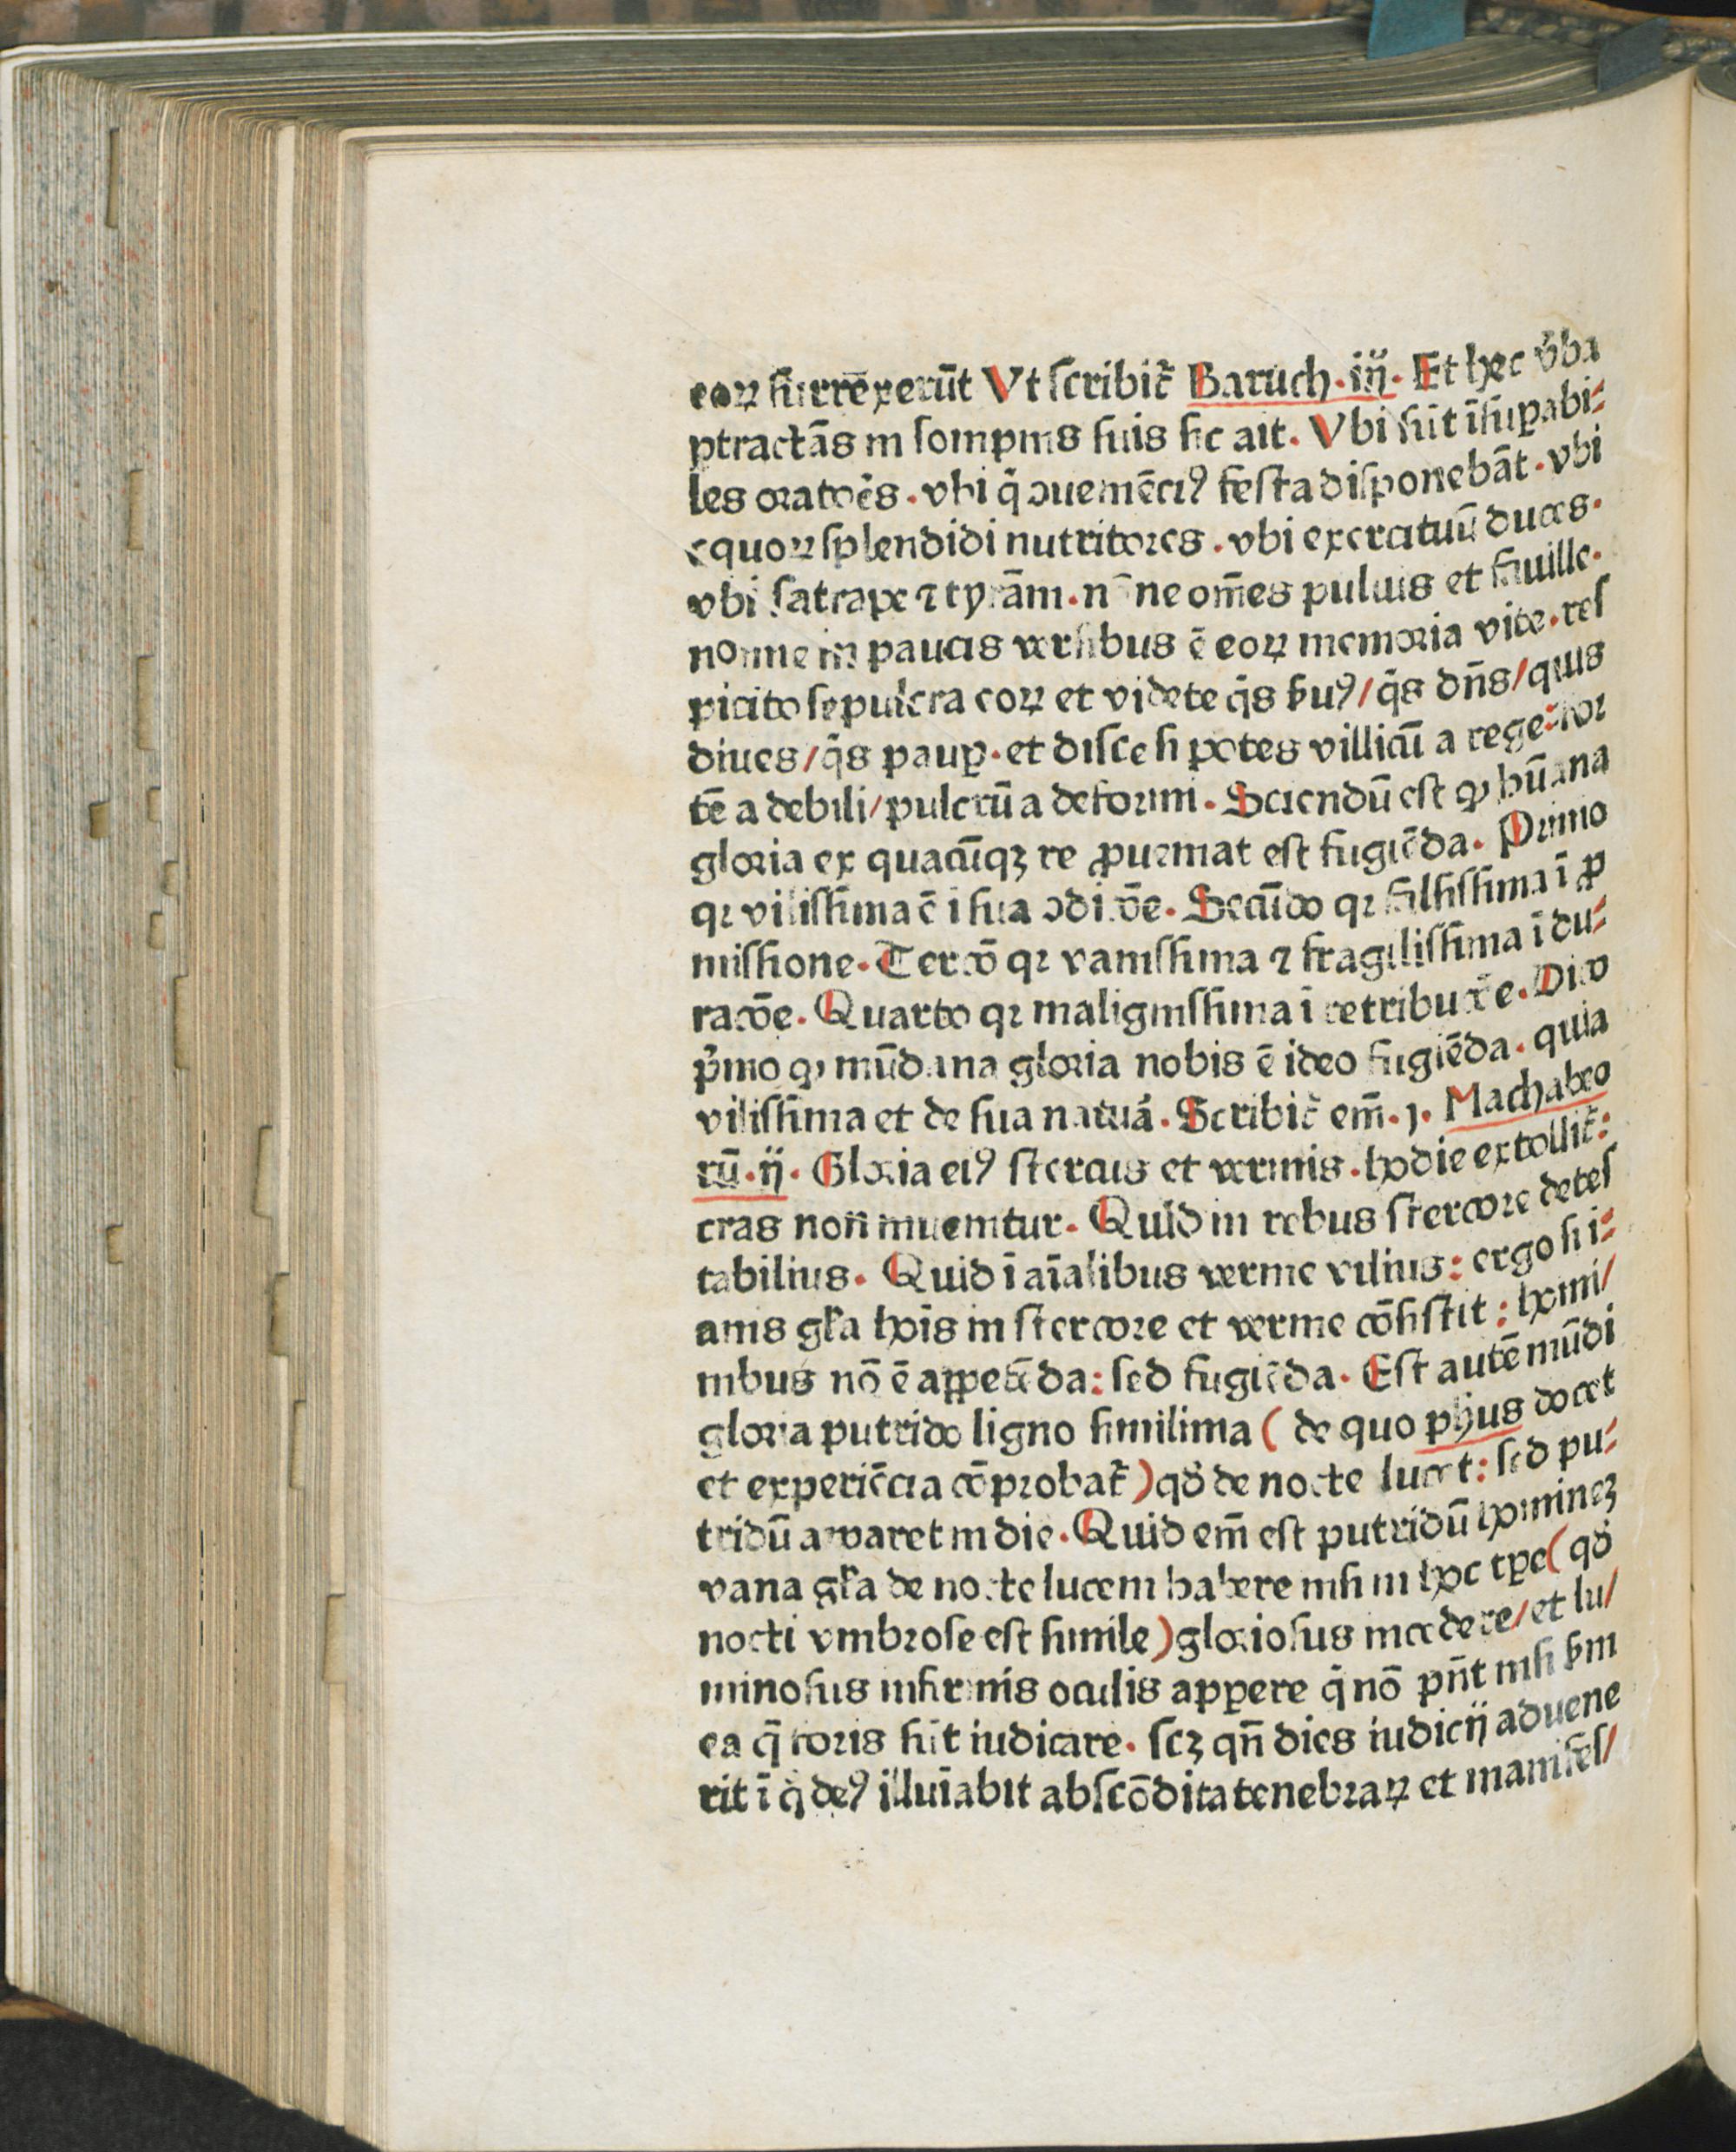 eoꝝ surrexerūt Vt scribit̄ Baruch·iij· Et hec v̄ba
ptractās in sompnis suis sic ait. Vbi sūt īsuꝑabi⸗
les oratōēs·vbi q̄ ↄueniēciꝰ festa disponebāt·vbi
equoꝝ splendidi nutritores·vbi exercituū duces·
vbi satrape ⁊ tyrāni·nōne om̄es puluis et fauille·
nonne in paucis versibus ē eoꝝ memoria vite·res
picito sepulcra eoꝝ et videte q̄s ẜuꝰ/q̄s dn̄s/quis
diues/q̄s pauꝑ·et disce si potes villicū a rege⸗for
tē a debili/pulcrū a deformi·Sciendū est ꝙ hūana
gloria ex quacūqꝫ re ꝓueniat est fugiēda. Primo
qꝛ vilissima ē ī sua ↄdicōe·Secūdo qꝛ falsissima ī ꝓ
missione·Tercō qꝛ vanissima ⁊ fragilissima ī du⸗
racōe·Quarto qꝛ malignissima ī retribucōe·Dico
p̄mo ꝙ mūdana gloria nobis ē ideo fugiēda·quia
vilissima et de sua natura·Scribit̄ em̄·j·Machabeo
rū·ij·Gloria eiꝰ stercus et vermis·hodie extollit̄:
cras non inuenitur·Quid in rebus stercore detes
tabilius·Quid ī aīalibus verme vilius: ergo si i⸗
anis gl̄a hoīs in stercore et verme cōsistit: homi/
nibus nō ē appetēda: sed fugiēda·Est autē mūdi
gloria putrido ligno similima ( de quo ph̄us docet
et experiēcia cōprobat̄ ) qď de nocte lucet: sed pu⸗
tridū apparet in die·Quid em̄ est putridū hominēꝫ
vana gl̄a de nocte lucem habere nisi in hoc tꝑe ( qď
nocti vmbrose est simile ) gloriosus incedere/et lu/
minosus infirmis oculis apꝑere q̄ nō pn̄t nisi ẜm
ea q̄ foris sūt iudicare·scꝫ qn̄ dies iudicij aduene
rit ī q̄ deꝰ illuīabit abscōdita tenebraꝝ et manifes/